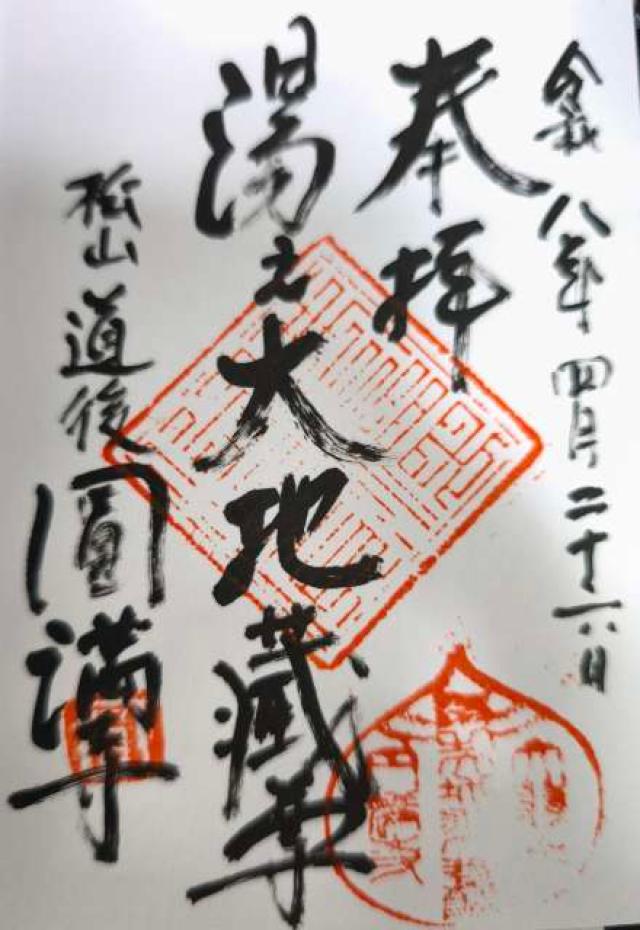 令和八年四月二十六日
奉拝
湯之大地蔵尊
松山道後圓満寺